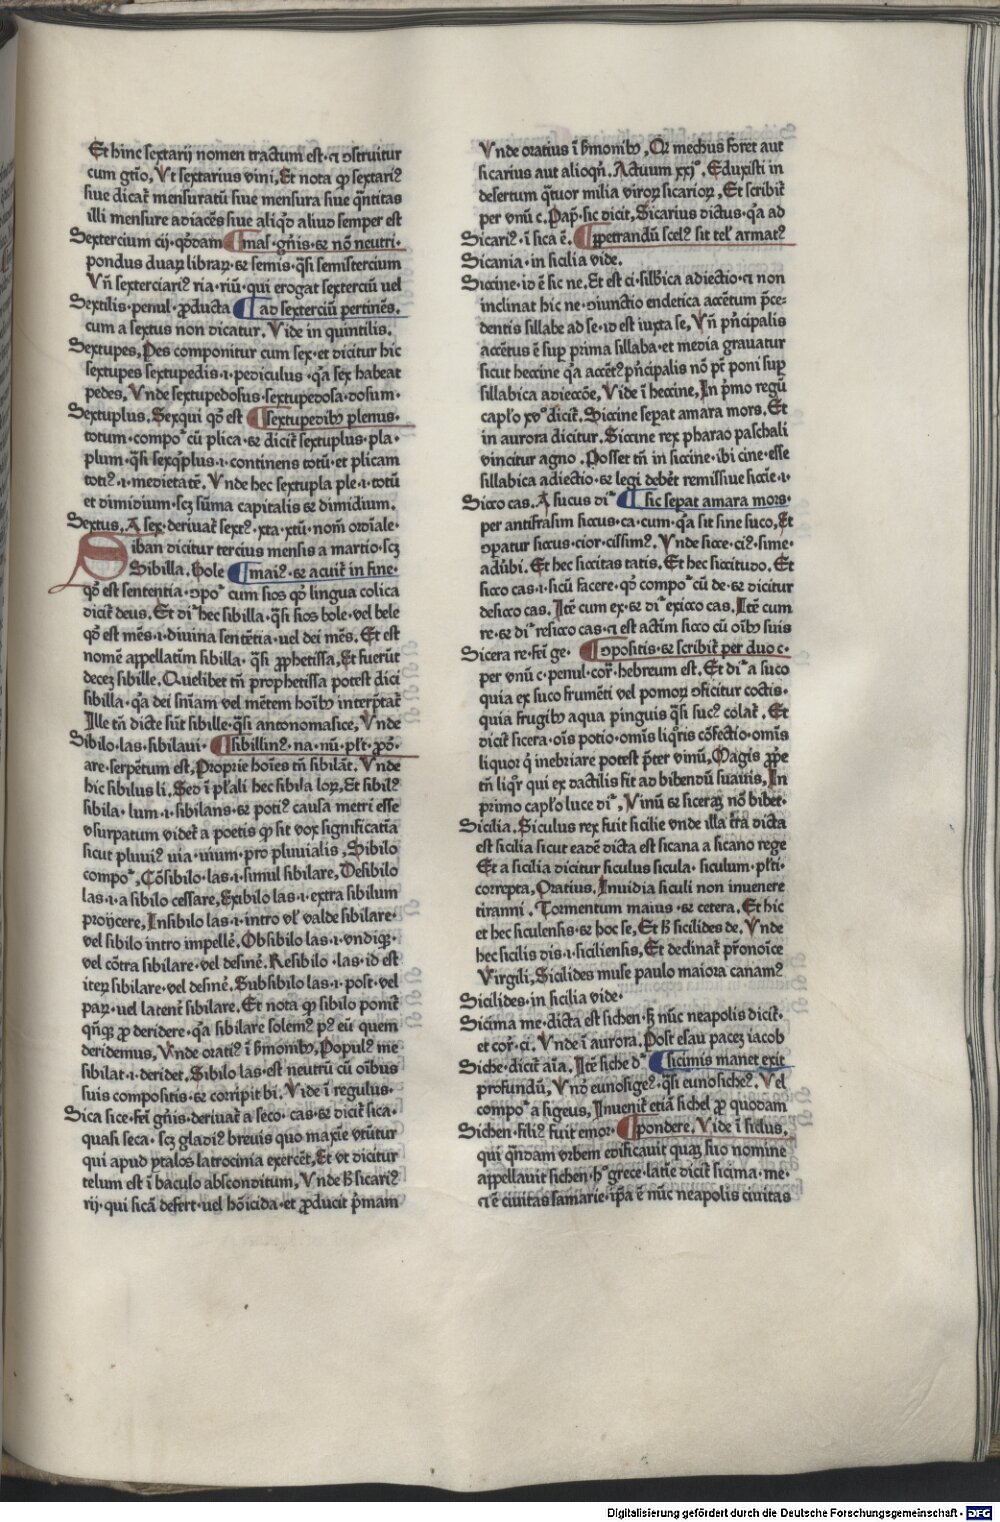 Et hinc sextarij nomen tractum est · ⁊ ↄstruitur
cum gtĩo, Vt sextarius vini, Et nota ꝙ sextariꝰ
siue dicat̃ mensuratũ siue mensura siue q̃ntitas
illi mensure adiacẽs siue aliqͦd aliud semper est
Sextercium cij · qͦddam ¶ mas᷒ · gñis · ⁊ nõ neutri ·
pondus duaꝝ libraꝝ · ⁊ semis · q̃si semistercium
Vñ sexterciariꝰ ria · riũ · qui erogat sexterciũ uel
Sextilis · penul · ꝓducta ¶ ad sexterciũ pertinẽs.
cum a sextus non dicatur. Vide in quintilis.
Sextupes, Pes componitur cum sex · et dicitur hic
sextupes sextupedis · i · pediculus · qͣa sex habeat
pedes, Vnde sextupedosus · sextupedosa · dosum ·
Sextuplus. Sexqui qͦd est ¶ sextupedibꝰ plenus ·
totum · compoͬ cũ plica · ⁊ dicit̃ sextuplus · pla ·
plum · q̃si sexq̃plus · i · continens totũ · et plicam
totiꝰ · i · medietatẽ. Vnde hec sextupla ple · i · totũ
et dimidium · scꝫ sũma capitalis ⁊ dimidium.
Sextus. A sex · deriuat̃ sextꝰ · xta · xtũ · nom̃ ordiale ·
Siban dicitur tercius mensis a martio · scꝫ
Sibilla. Bole ¶ maiꝰ · ⁊ acuit̃ in fine ·
qͦd est sententia · ↄpoͬ cum sios qͦd lingua eolica
dicit̃ deus. Et diͬ hec sibilla · q̃si sios bole · vel bele
qͦd est mẽs · i · diuina sentẽtia · uel dei mẽs. Et est
nomẽ appellatiũ sibilla · q̃si ꝓphetissa, Et fuerũt
deceꝫ sibille. Quelibet tñ prophetissa potest dici
sibilla · qͣa dei sñiam vel mẽtem hoĩbꝰ interp̃tat̃
Ille tñ dicte sũt sibille · q̃si antonomasice, Vnde
Sibilo · las · sibilaui · ¶ sibillinꝰ · na · nũ · pl̃t · ꝓõ ·
are · serpẽtum est, Proprie hoĩes tñ sibilãt. Vnde
hic sibilus li. Sed ĩ pl̃ali hec sibila loꝝ, Et sibilꝰ
sibila · lum · i · sibilans · ⁊ potiꝰ causa metri esse
vsurpatum videt̃ a poetis ꝙ sit vox significatĩa
sicut pluuiꝰ uia · uium · pro pluuialis, Sibilo
compoͬ, Cõsibilo · las · i · simul sibilare, Desibilo
las · i · a sibilo cessare, Exibilo las · i · extra sibilum
proijcere, Insibilo las · i · intro vl̕ valde sibilare ·
vel sibilo intro impellẽ. Obsibilo las · i · vndiqꝫ ·
vel cõtra sibilare · vel desinẽ. Resibilo · las · id est
iteꝝ sibilare · vel desinẽ. Subsibilo las · i · post · vel
paꝝ · uel latent̃ sibilare. Et nota ꝙ sibilo ponit̃
qñqꝫ ꝓ deridere · qͣa sibilare solemꝰ pꝰ eũ quem
deridemus, Vnde oratiꝰ ĩ ẜmonibꝰ, Populꝰ me
sibilat · i · deridet, Sibilo las · est neutrũ cũ oĩbus
suis compositis · ⁊ corripit bi. Vide ĩ regulus ·
Sica sice · fẽi gñis · deriuat̃ a seco · cas · ⁊ dicit̃ sica ·
quasi seca · scꝫ gladiꝰ breuis quo maxĩe vtũtur
qui apud ytalos latrocinia exercẽt, Et vt dicitur
telum est ĩ baculo absconditum, Vnde ħ sicariꝰ
rij · qui sicã defert · uel hõicida · et ꝓducit p̃mam
Vnde oratius ĩ ẜmonibꝰ, Qꝛ mechus foret aut
sicarius aut alioqñ. Actuum xxjͦ. Eduxisti in
desertum q̃tuor milia viroꝝ sicarioꝝ, Et scribit̃
per vnũ c. Pap᷒ · sic dicit, Sicarius dictus · qͣa ad
Sicariꝰ · ĩ sica ẽ. ¶ ꝑpetrandũ scelꝰ sit tel̕ armatꝰ
Sicania · in sicilia vide.
Siccine · id ẽ sic ne. Et est ci · sillbica adiectio · ⁊ non
inclinat hic ne · ↄiunctio endetica accẽtum p̃ce⸗
dentis sillabe ad se · id est iuxta se, Vñ pñcipalis
accẽtus ẽ suꝑ prima sillaba · et media grauatur
sicut heccine qͣa accẽtꝰ pñcipalis nõ pt̃ poni suꝑ
sillabica adiecciõe, Vide ĩ heccine, In p̃mo regũ
capl̕o xvͦ dicit̃. Siccine sepat amara mors. Et
in aurora dicitur. Siccine rex pharao paschali
vincitur agno. Posset tñ in siccine · ibi cine · esse
sillabica adiectio · ⁊ legi debet̃ remissiue siccĩe · i ·
Sicco cas. A sucus diͬ ¶ sic sepat amara mors ·
per antifrasim siccus · ca · cum · qͣa sit sine suco, Et
ↄpatur siccus · cior · cissimꝰ. Vnde sicce · ciꝰ · sime ·
adũbi. Et hec siccitas tatis, Et hec siccitudo. Et
sicco cas · i · siccũ facere · qͦd compoͬ cũ de · ⁊ dicitur
desicco cas. Itẽ cum ex · ⁊ diͬ exicco cas. Itẽ cum
re · ⁊ diͬ resicco cas · ⁊ est actĩm sicco cũ oĩbꝰ suis
Sicera re · fẽi ge · ¶ ↄpositis · ⁊ scribit̃ per duo c ·
per vnũ c · penul · cor̃ · hebreum est. Et diͬ a suco
quia ex suco frumẽti vel pomoꝝ ↄficitur coctis ·
quia frugibꝰ aqua pinguis q̃si sucꝰ colat̃. Et
dicit̃ sicera · oĩs potio · omĩs liq̃ris cõfectio · omĩs
liquor q̃ inebriare potest p̃ter vinũ, Magis ꝓpe
tñ liq̃r qui ex dactilis fit ad bibendũ suauis, In
primo capl̕o luce diͬ, Vinũ ⁊ siceraꝫ nõ bibet ·
Sicilia. Siculus rex fuit sicilie vnde illa tr̃a dicta
est sicilia sicut eadẽ dicta est sicana a sicano rege
Et a sicilia dicitur siculus sicula · siculum · pl̕ti ·
correpta, Oratius. Inuidia siculi non inuenere
tiranni. Tormentum maius · ⁊ cetera. Et hic
et hec siculensis · ⁊ hoc se, Et ħ sicilides de. Vnde
hec sicilis dis · i · siciliensis, Et declinat̃ pr̃onoĩce
Virgili, Sicilides muse paulo maiora canamꝰ
Sicilides · in sicilia vide ·
Sicima me · dicta est sichen · ꝗ nũc neapolis dicit̃ ·
et cor̃ · ci. Vnde ĩ aurora. Post esau paceꝫ iacob
Siche · dicit̃ aĩa. Itẽ siche dͬ ¶ sicimis manet exit
profundũ, Vñ eunosigeꝰ · q̃si eunosicheꝰ. Vel
compoͬ a sigeus, Inuenit̃ etiã sichel ꝓ quodam
Sichen · filiꝰ fuit emor · ¶ pondere. Vide ĩ siclus.
qui q̃ndam vrbem edificauit quaꝫ suo nomine
appellauit sichen · hͬ grece · latĩe dicit̃ sicima · me ·
⁊ ẽ ciuitas samarie · ip̃a ẽ nũc neapolis ciuitas
Digitalisierung gefördert durch die Deutsche Forschungsgemeinschaft - DFG